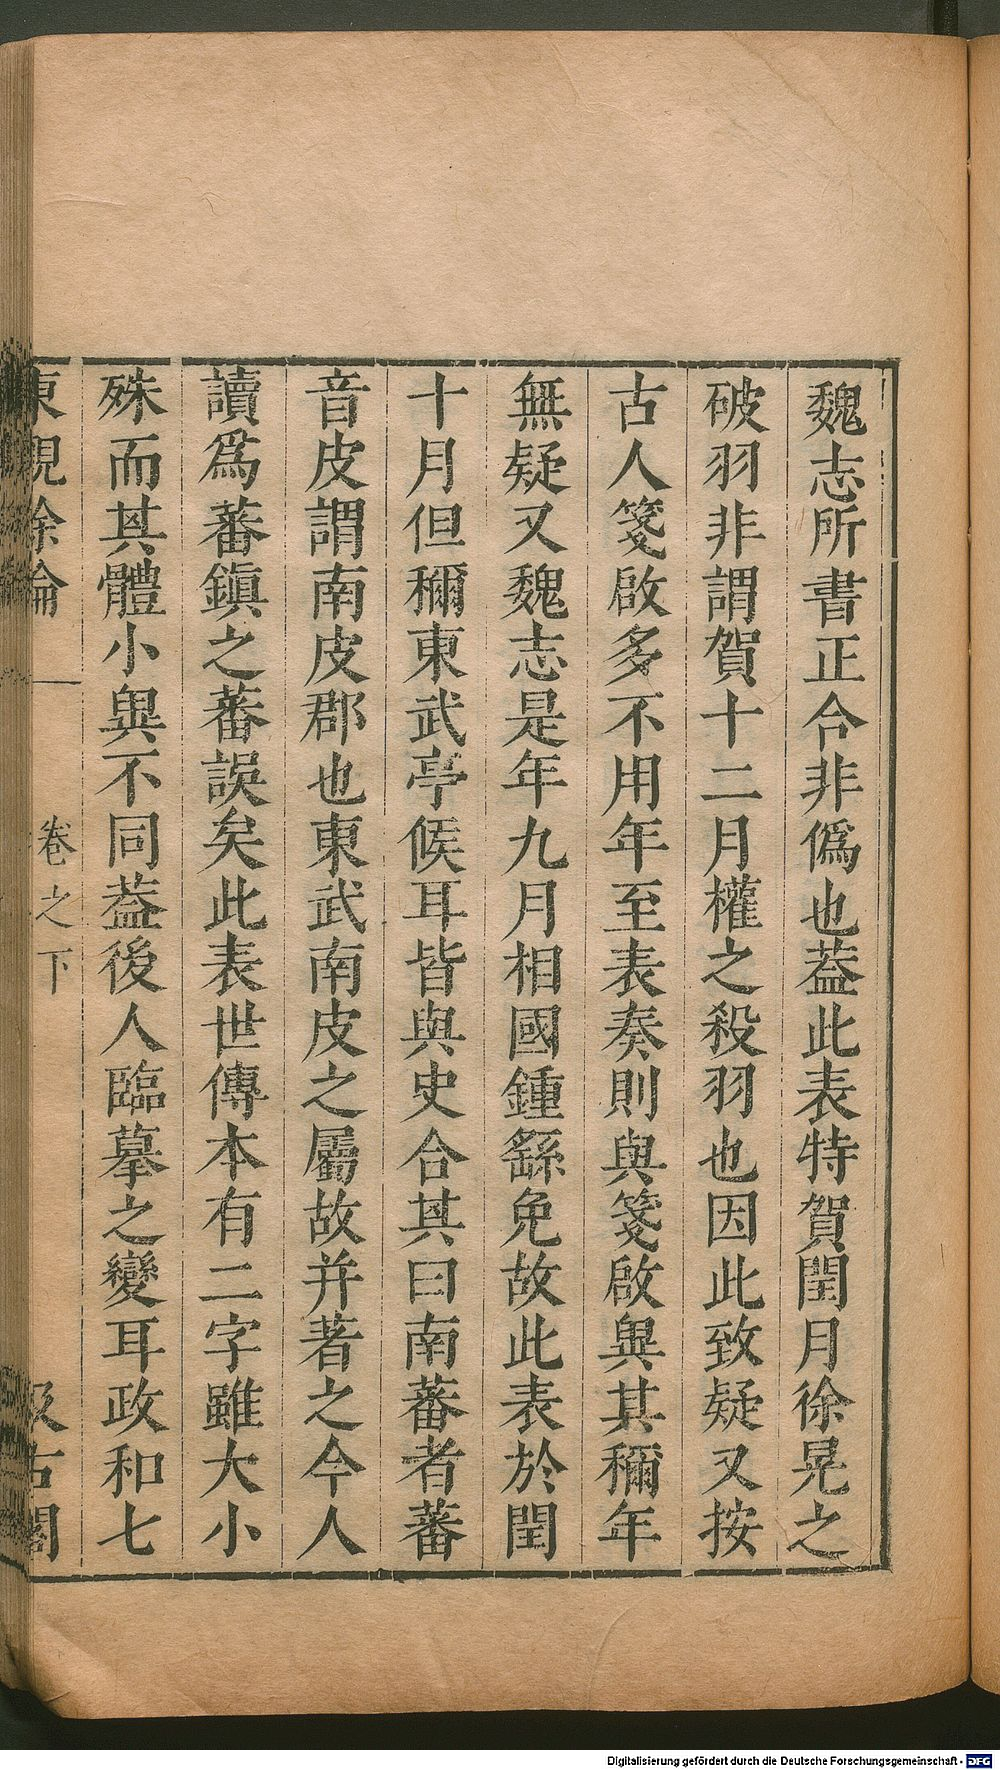 魏志所書正合非僞也葢此表特賀閏月徐晃之
破羽非謂賀十二月權之殺羽也因此致疑又按
古人箋啟多不用年至表奏則與箋啟異其稱年
無疑又魏志是年九月相國鍾繇免故此表於閏
十月但稱東武亭侯耳皆與史合其曰南蕃者蕃
音皮謂南皮郡也東武南皮之屬故并著之今人
讀爲蕃鎮之蕃誤矣此表世傳本有二字雖大小
殊而其體小異不同葢後人臨摹之變耳政和七
東觀餘論
卷之下
汲古閣
Digitalisierung gefördert durch die Deutsche Forschungsgemeinschaft - DFG